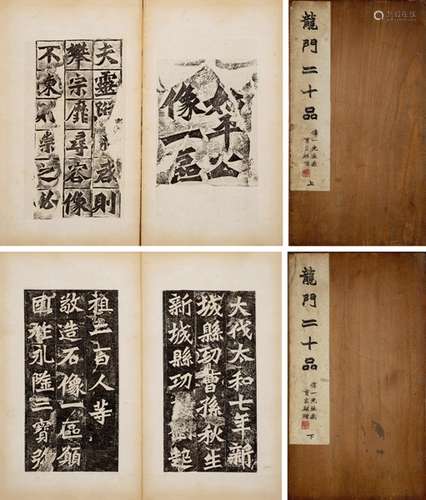 龍門二十品
上
始平公
像一區
夫靈
啓則
攀宗靡尋容像
不陳則崇之必
龍門二十品
下
大代太和七年新
城縣功曹孫秋生
新城縣功曹劉起
祖二百人等
敬造石像一區願
國祚永隆三寶弥